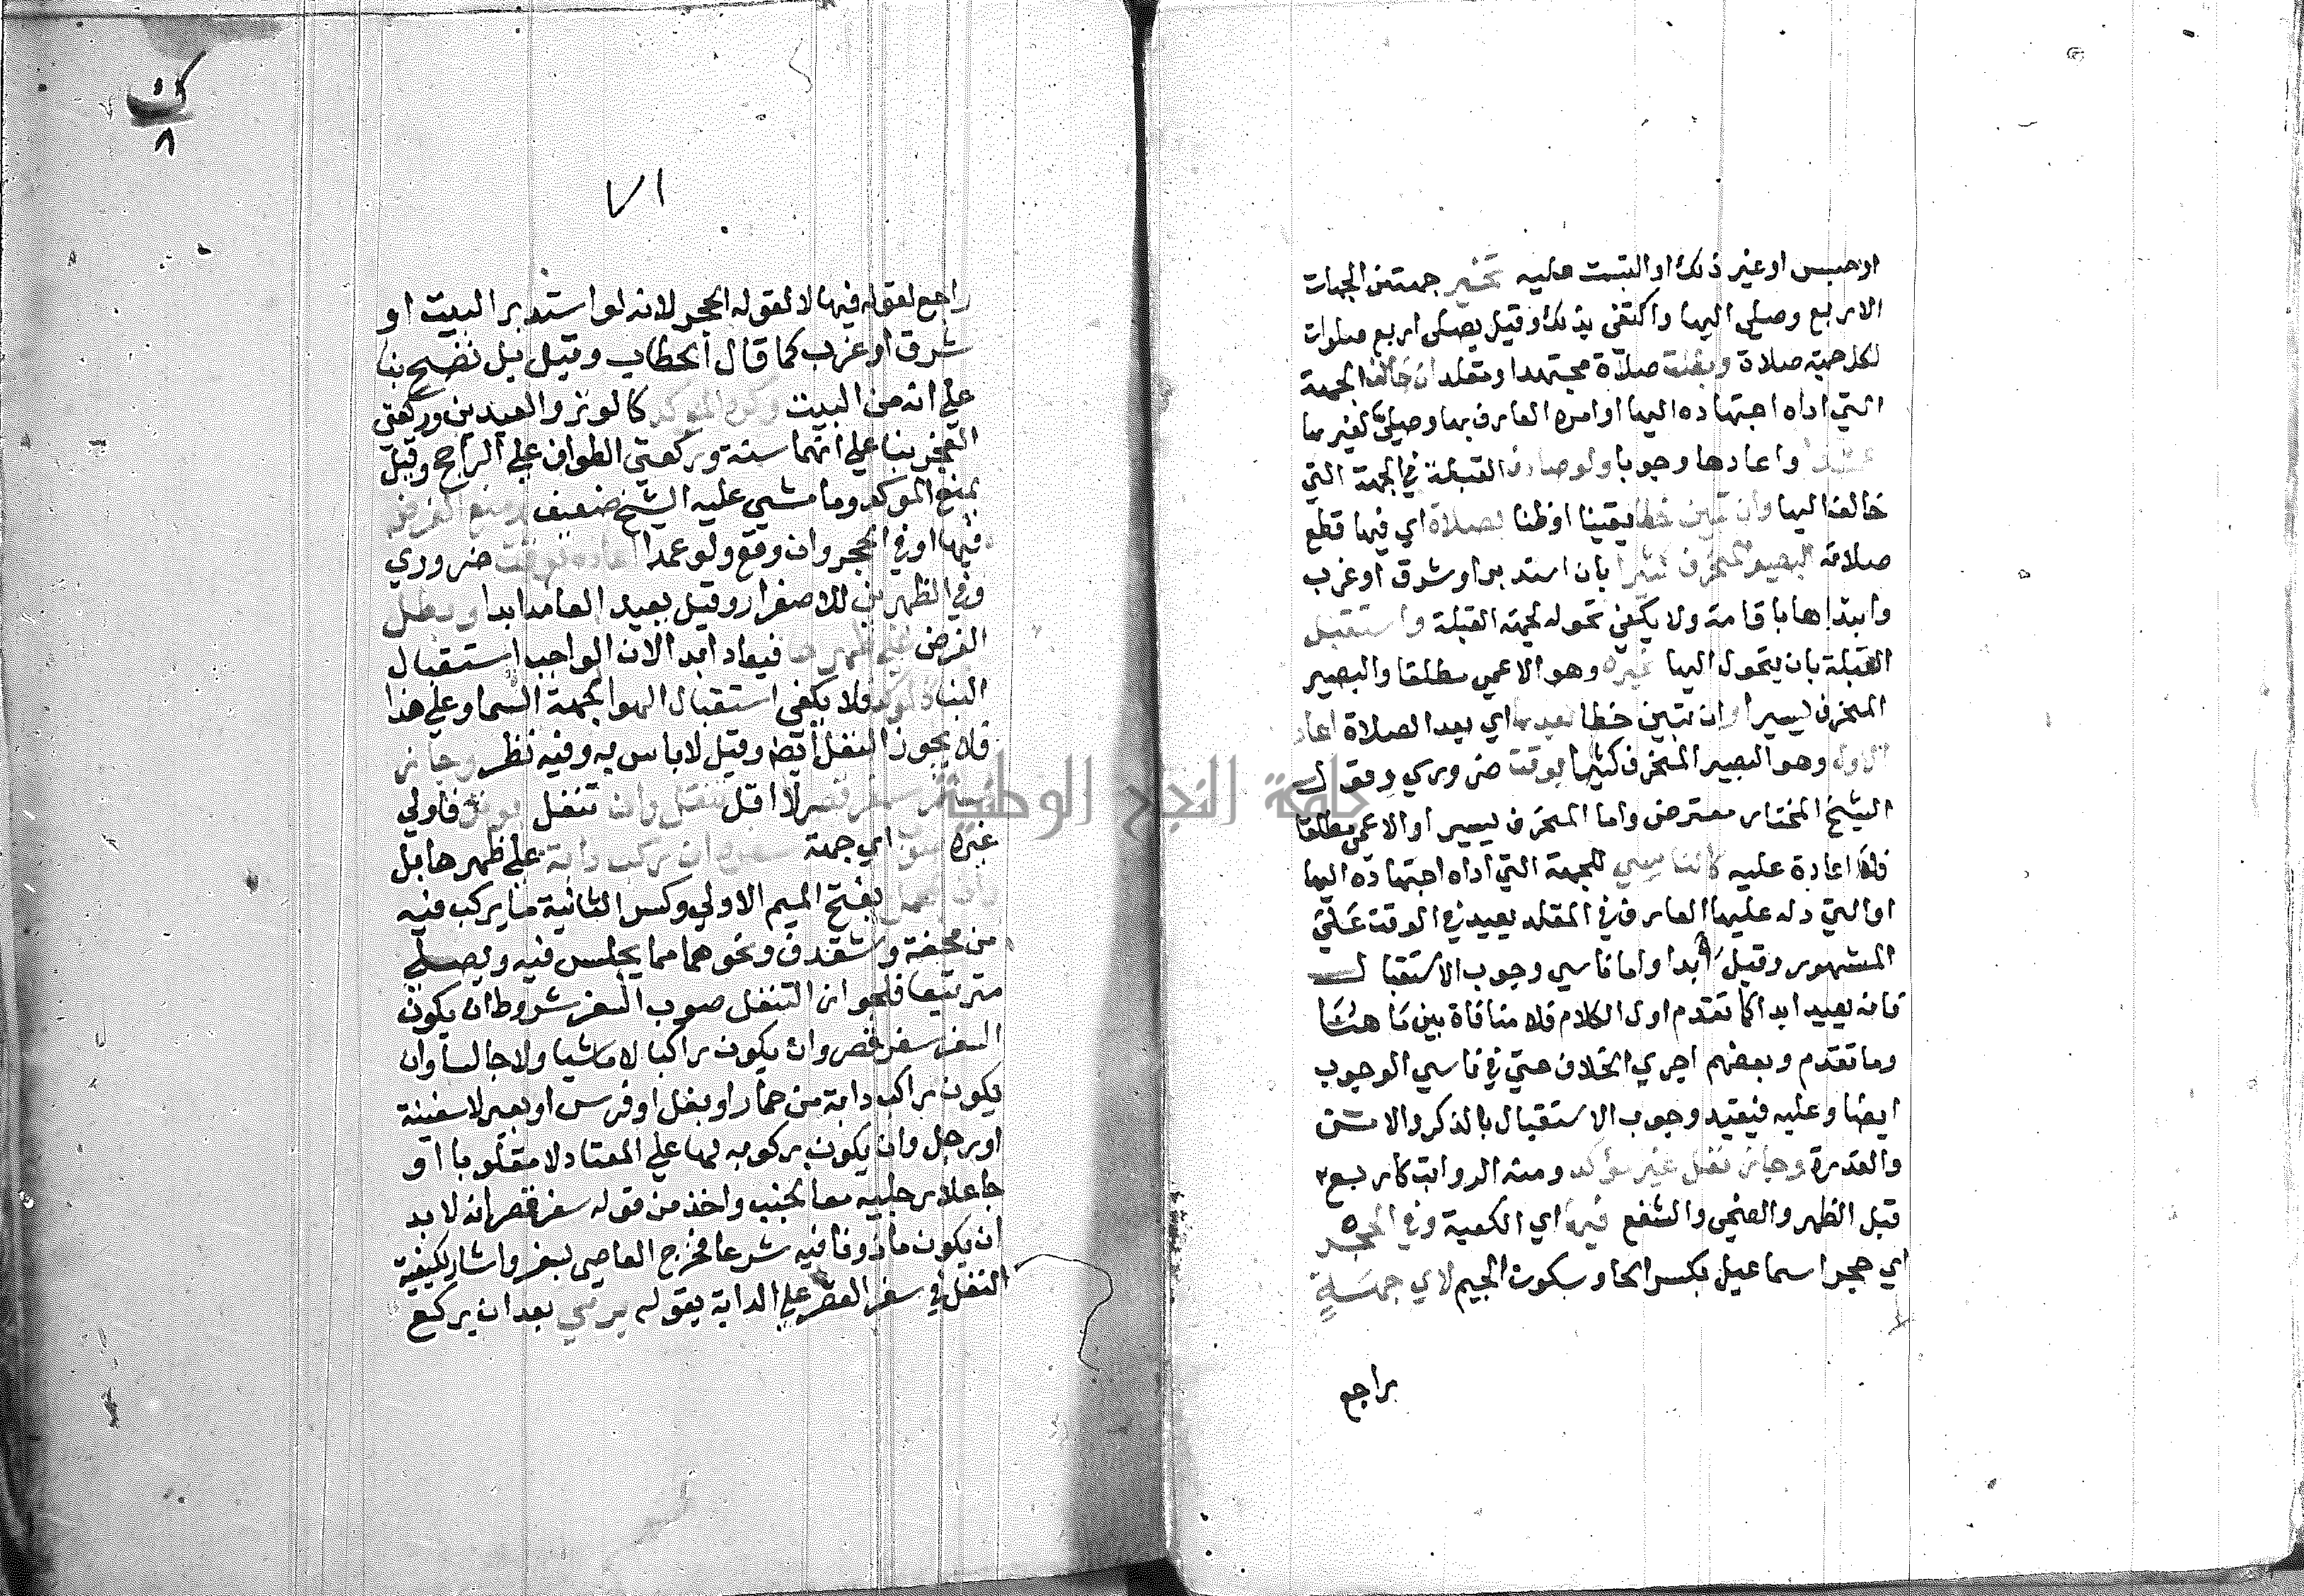 او حبس او غير ذلك او التبست عليه تخير جهة من الجهات
الاربع وصلي اليها واكتفي بذلك وقيل يصلي اربع صلوات
لكل جهة صلاة وبطلت صلاة مجتهد او مقلد ان خالف الجهة
التي اداه اجتهاده اليها او امره العارف بها وصلي لغيرها
واعادها وجوبا ولو صادف القبلة في الجهة التي
خالف اليها وان تبين خطا يقينا او ظنا بصلاة اي فيها قطع
صلاته البصير المنحرف كثيرا بان استدبر او شرق او غرب
وابتداها باقامة ولا يكفي تحوله لجهة القبلة واستقبل
القبلة بان يتحول اليها غيره وهو الاعمي مطلقا والبصير
المنحرف يسيرا وان تبين خطا بعدها اي بعد الصلاة اعاد
الاول وهو البصير المنحرف كثيرا بوقت ضروري وقول
الشيخ المختار معترض واما المنحرف يسيرا او الاعمي مطلقا
فلا اعادة عليه كالناسي للجهة التي اداه اجتهاده اليها
او التي دله عليها العارف في المقلد يعيد في الوقت علي
المشهور وقيل ابدا واما ناسي وجوب الاستقبال
فانه يعيد ابدا كما تقدم اول الكلام فلا منافاة بين ما هنا
وما تقدم وبعضهم اجري الخلاف حتي في ناسي الوجوب
ايضا وعليه فيقيد وجوب الاستقبال بالذكر والامن
والقدرة وجاز نفل غير مؤكد ومنه الرواتب كاربع
قبل الظهر والضحي والشفع فيها اي الكعبة وفي الحجر
اي حجر اسماعيل بكسر الحا وسكون الجيم لاي جهة
راجع
ك
٨
٧١
راجع لقوله فيها لا لقوله الحجر لانه لو استدبر البيت او
شرق او غرب كما قال الحطاب وقيل بل تصح بنا
علي انه من البيت وكره المؤكد كالوتر والعيدين وركعتي
الفجر بنا علي انهما سنة وركعتي الطواف علي الراجح وقيل
بمنع المؤكد وما مشي عليه الشيخ ضعيف ومنع الفرض
فيها او في الحجر وان وقع ولو عمدا اعاده بوقت ضروري
وفي الظهرين للاصفرار وقيل يعيد العامد ابدا وبطل
الفرض علي ظهرها فيعاد ابدا لان الواجب استقبال
البنا ولا يكفي استقبال الهوا لجهة السما وعلي هذا
فلا يجوز النفل ايضا وقيل لا باس به وفيه نظر وجاز
سفر قصر لا اقل تنفل وان تنفل بوتر فاولي
غيره صوب اي جهة سفره ان ركب دابة علي ظهرها بل
وان بمحمل بفتح الميم الاولي وكسر الثانية ما يركب فيه
من محفة وشقدف ونحوهما مما يجلس فيه ويصلي
متربعا فلجواز التنفل صوب السفر شروط ان يكون
السفر سفر قصر وان يكون راكبا لا ماشيا ولا جالسا وان
يكون راكب دابة من حمار او بغل او فرس او بعير لا سفينة
او رجل وان يكون ركوبه لها علي المعتاد لا مقلوبا او
جاعلا رجليه معا لجنب واخذ من قوله سفر قصر انه لا بد
ان يكون ماذونا فيه شرعا فخرج العاصي بسفره واشار لكيفية
التنفل في سفر القصر علي الدابة بقوله يومي بعد ان يركع